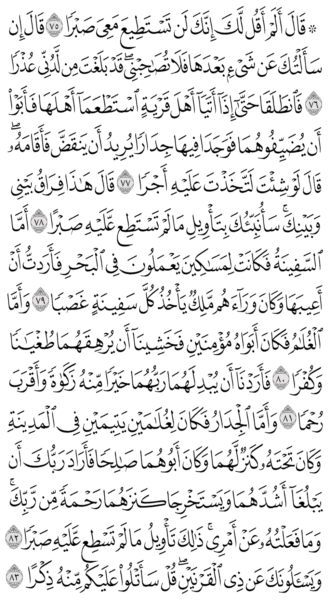 ۞ قَالَ أَلَمْ أَقُل لَّكَ إِنَّكَ لَن تَسْتَطِيعَ مَعِيَ صَبْرًا ٧٥ قَالَ إِن
سَأَلْتُكَ عَن شَيْءٍ بَعْدَهَا فَلَا تُصَاحِبْنِي ۖ قَدْ بَلَغْتَ مِن لَّدُنِّي عُذْرًا
٧٦ فَانطَلَقَا حَتَّىٰ إِذَا أَتَيَا أَهْلَ قَرْيَةٍ اسْتَطْعَمَا أَهْلَهَا فَأَبَوْا
أَن يُضَيِّفُوهُمَا فَوَجَدَا فِيهَا جِدَارًا يُرِيدُ أَن يَنقَضَّ فَأَقَامَهُ ۖ
قَالَ لَوْ شِئْتَ لَتَّخَذْتَ عَلَيْهِ أَجْرًا ٧٧ قَالَ هَٰذَا فِرَاقُ بَيْنِي
وَبَيْنِكَ ۚ سَأُنَبِّئُكَ بِتَأْوِيلِ مَا لَمْ تَسْتَطِع عَّلَيْهِ صَبْرًا ٧٨ أَمَّا
السَّفِينَةُ فَكَانَتْ لِمَسَاكِينَ يَعْمَلُونَ فِي الْبَحْرِ فَأَرَدتُّ أَنْ
أَعِيبَهَا وَكَانَ وَرَاءَهُم مَّلِكٌ يَأْخُذُ كُلَّ سَفِينَةٍ غَصْبًا ٧٩ وَأَمَّا
الْغُلَامُ فَكَانَ أَبَوَاهُ مُؤْمِنَيْنِ فَخَشِينَا أَن يُرْهِقَهُمَا طُغْيَانًا
وَكُفْرًا ٨٠ فَأَرَدْنَا أَن يُبْدِلَهُمَا رَبُّهُمَا خَيْرًا مِّنْهُ زَكَاةً وَأَقْرَبَ
رُحْمًا ٨١ وَأَمَّا الْجِدَارُ فَكَانَ لِغُلَامَيْنِ يَتِيمَيْنِ فِي الْمَدِينَةِ
وَكَانَ تَحْتَهُ كَنزٌ لَّهُمَا وَكَانَ أَبُوهُمَا صَالِحًا فَأَرَادَ رَبُّكَ أَن
يَبْلُغَا أَشُدَّهُمَا وَيَسْتَخْرِجَا كَنزَهُمَا رَحْمَةً مِّن رَّبِّكَ ۚ
وَمَا فَعَلْتُهُ عَنْ أَمْرِي ۚ ذَٰلِكَ تَأْوِيلُ مَا لَمْ تَسْطِع عَّلَيْهِ صَبْرًا ٨٢
وَيَسْأَلُونَكَ عَن ذِي الْقَرْنَيْنِ ۖ قُلْ سَأَتْلُو عَلَيْكُم مِّنْهُ ذِكْرًا ٨٣